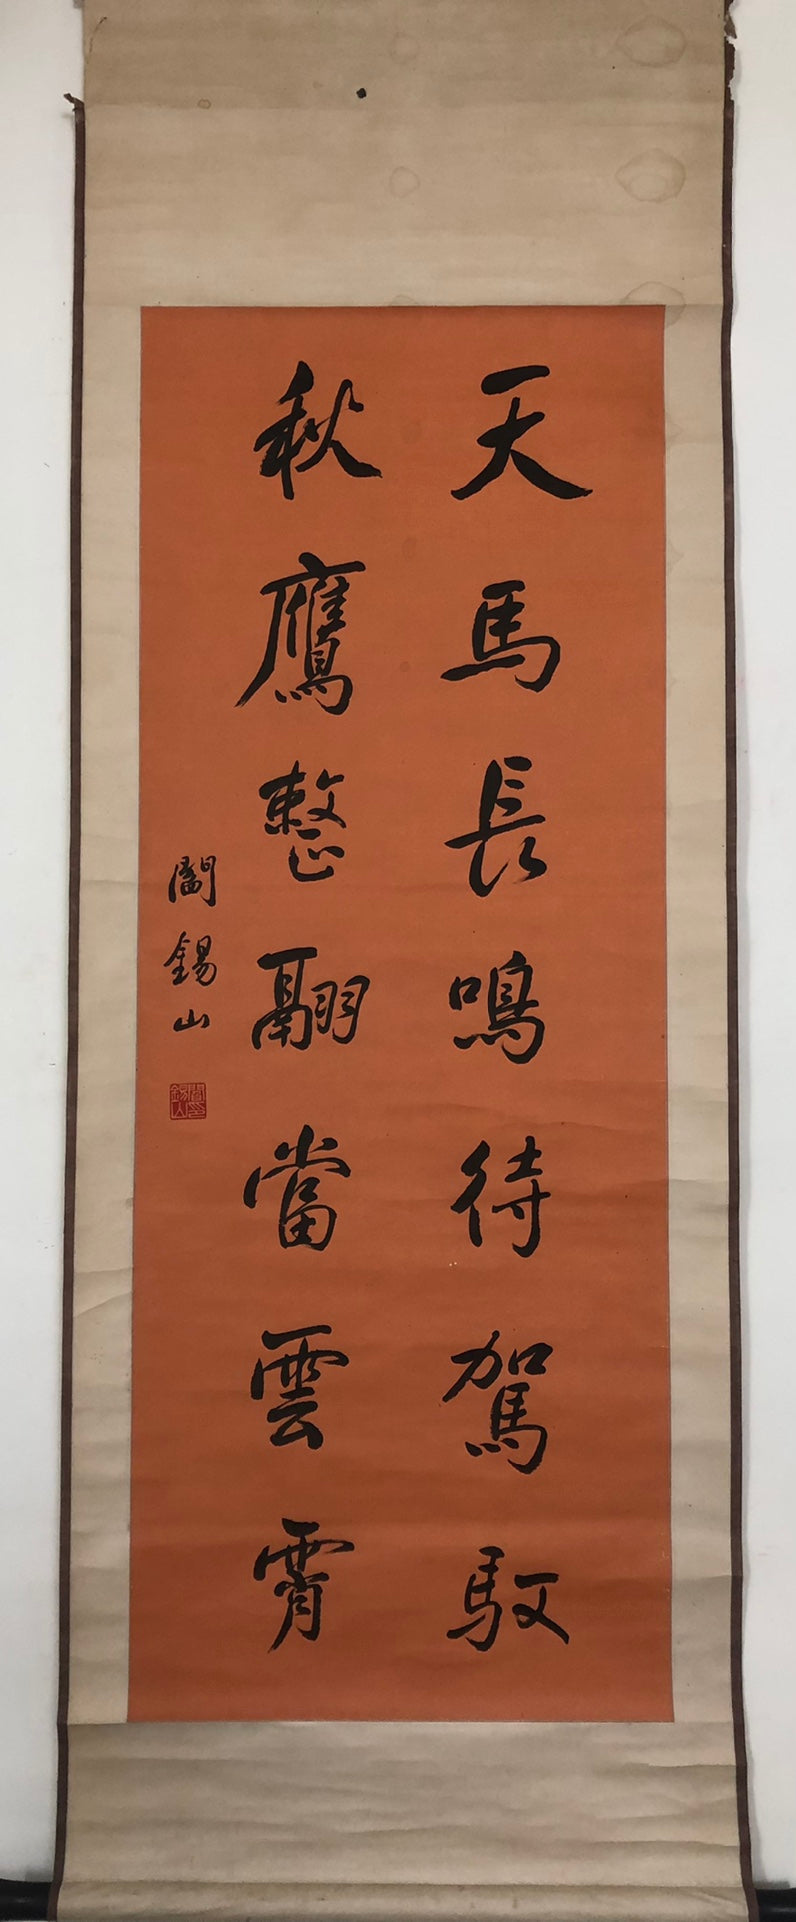 天馬長鳴待駕馭
秋鷹整翮當雲霄
閻錫山
閻錫山印